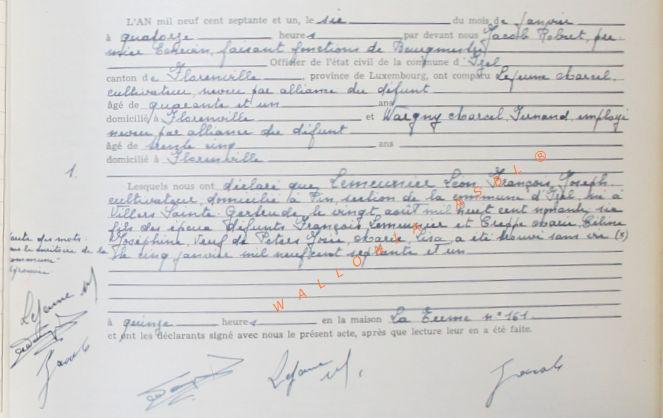 L'AN mil neuf cent septante et un, le six du mois de janvier
à quatorze heures par devant nous Jacob Robert, pre-
mier Echevin, faisant fonctions de Bourgmestre
Officier de l'état civil de la commune d'Izel
canton de Florenville, province de Luxembourg, ont comparu Lejeune Marcel,
cultivateur, neveu par alliance du défunt
âgé de quarante et un ans
domicilié à Florenville et Wargny Marcel, Fernand, employé
neveu par alliance du défunt
âgé de trente cinq ans
domicilié à Florenville
1.
Lesquels nous ont déclaré que Lemeunier Léon François Joseph
cultivateur, domicilié à Pin, section de la commune d'Izel, né à
Villers Sainte-Gertrude, le vingt août mil huit cent nonante six
fils des époux défunts François Lemeunier et Marie Céline
Joséphine, Veuf de Peters Marie, Lisa, a été trouvé sans vie (x)
le cinq janvier mil neuf cent septante et un
des mots:
Lejeune M
Jacob
à quinze heures en la maison La n° 161
et ont les déclarants signé avec nous le présent acte, après que lecture leur en a été faite.
Lejeune M.
Jacob
WALLONIA ASBL ®